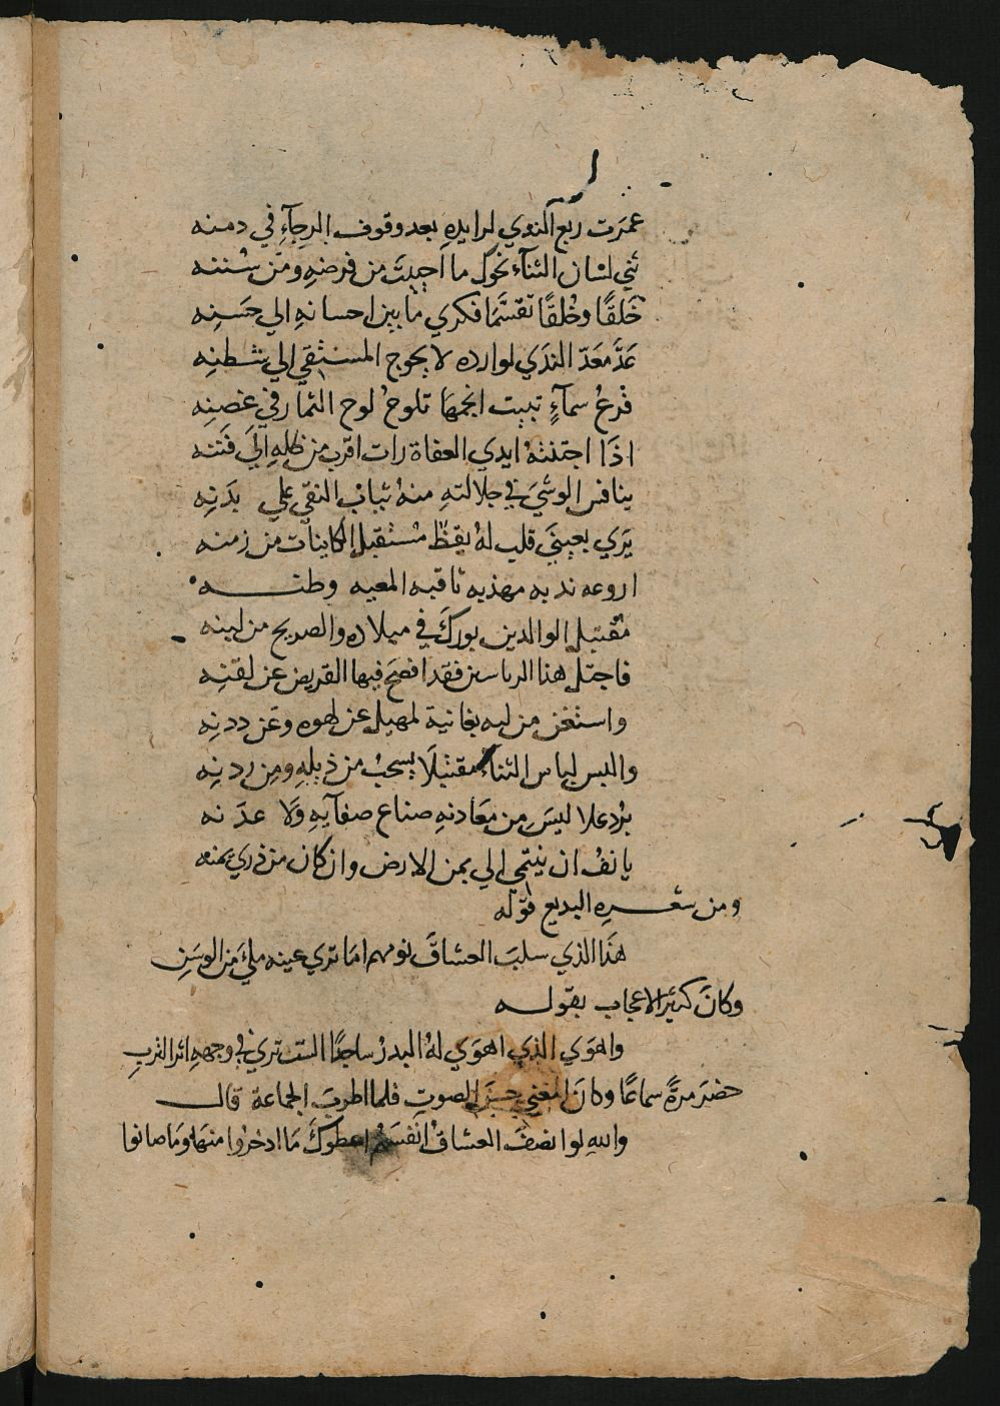 عمرَت ربع الندي لرايدهِ بعد وقوف الرجآءِ في دمنه
ثني لسان الثنآء نحوك ما احييتَ من فرضهِ ومن سُننه
خَلقًا وخُلقًا تقسّمَا فكري ما بين احسانهِ الي حَسَنِه
عَدَّ مَعَدّ الندَي لوارده لا يحوج المستقي الي شطنِه
فرعُ سمآءٍ تبيت انجمهَا تلوحُ لوح الثمار في غصنِه
اذَا اجتنتهُ ايدي العفاة رات اقرب من ظلهِ الَي فَننه
ينافس الوشيَ في جلالتهِ منهُ ثياب التقي علي بدَنِه
يَري بعينَي قلب لهُ يقظ مُستقبل الكاينات من زمنه
اروعه ندبه مهذبه ثاقبه المعيه وطنـــه
مُقبَل الوالدين بورك في ميلاده والصريح من لبنه
فاجتل هذا الرباسن فقد افصحَ فيها القريض عن لقنِه
واستغن من لبه بغانية لمهبل عن لهوه وعن ددنِه
والبس لباس الثناء مقتبلًا يسحبُ من ذيلهِ ومن ردنِه
بُرد علا ليسَ من معَادنهِ صناع صنعآيهِ ولَا عدَنه
يانفُ ان ينتمي الي يمن الارض وان كان من ذري يمنه
ومن شعــرهِ البديع قوله
هذَا الذي سلبَ العشاقَ نومهم امَا تري عينه ملئَ مِن الوسَنِ
وكانَ كثير الاعجاب بقولــه
واهوَي الذي اهوَي لهُ البدرُ ساجدًا الست تري في وجههِ اثر التربِ
حضَر مرةً سماعًا وكانَ المغني حسَن الصوتِ فلما اطربَ الجماعة قالــ
والله لو انصفَ العشاقُ انفسَهُم اعطوكَ مَا ادخرُوا منهَا ومَا صانوا